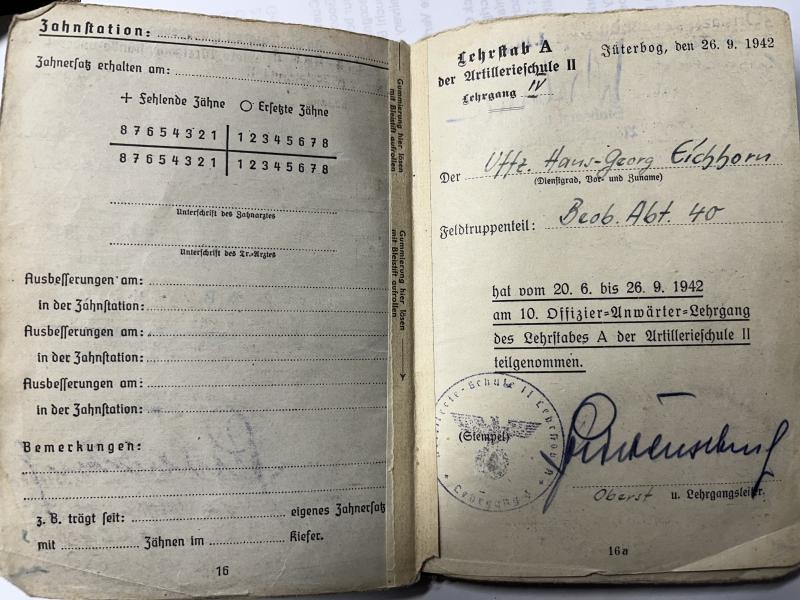 Zahnstation:
Zahnersatz erhalten am:
+ Fehlende Zähne ○ Ersetzte Zähne
8 7 6 5 4 3 2 1 | 1 2 3 4 5 6 7 8
8 7 6 5 4 3 2 1 | 1 2 3 4 5 6 7 8
Unterschrift des Zahnarztes
Unterschrift des Tr.-Arztes
Ausbesserungen am:
in der Zahnstation:
Ausbesserungen am:
in der Zahnstation:
Ausbesserungen am:
in der Zahnstation:
Bemerkungen:
z. B. trägt seit: eigenes Zahnersatz
mit Zähnen im Kiefer.
16
Gummierung hier lösen
mit Bleistift aufrollen
Gummierung hier lösen
mit Bleistift aufrollen
Lehrstab A
der Artillerieschule II
Lehrgang IV
Jüterbog, den 26. 9. 1942
Der Uffz. Hans-Georg Eichhorn
(Dienstgrad, Vor- und Zuname)
Feldtruppenteil: Beob. Abt. 40
hat vom 20. 6. bis 26. 9. 1942
am 10. Offizier-Anwärter-Lehrgang
des Lehrstabes A der Artillerieschule II
teilgenommen.
Artillerie-Schule II Lehrstab A
Lehrgang
(Stempel)
Oberst u. Lehrgangsleiter.
16a